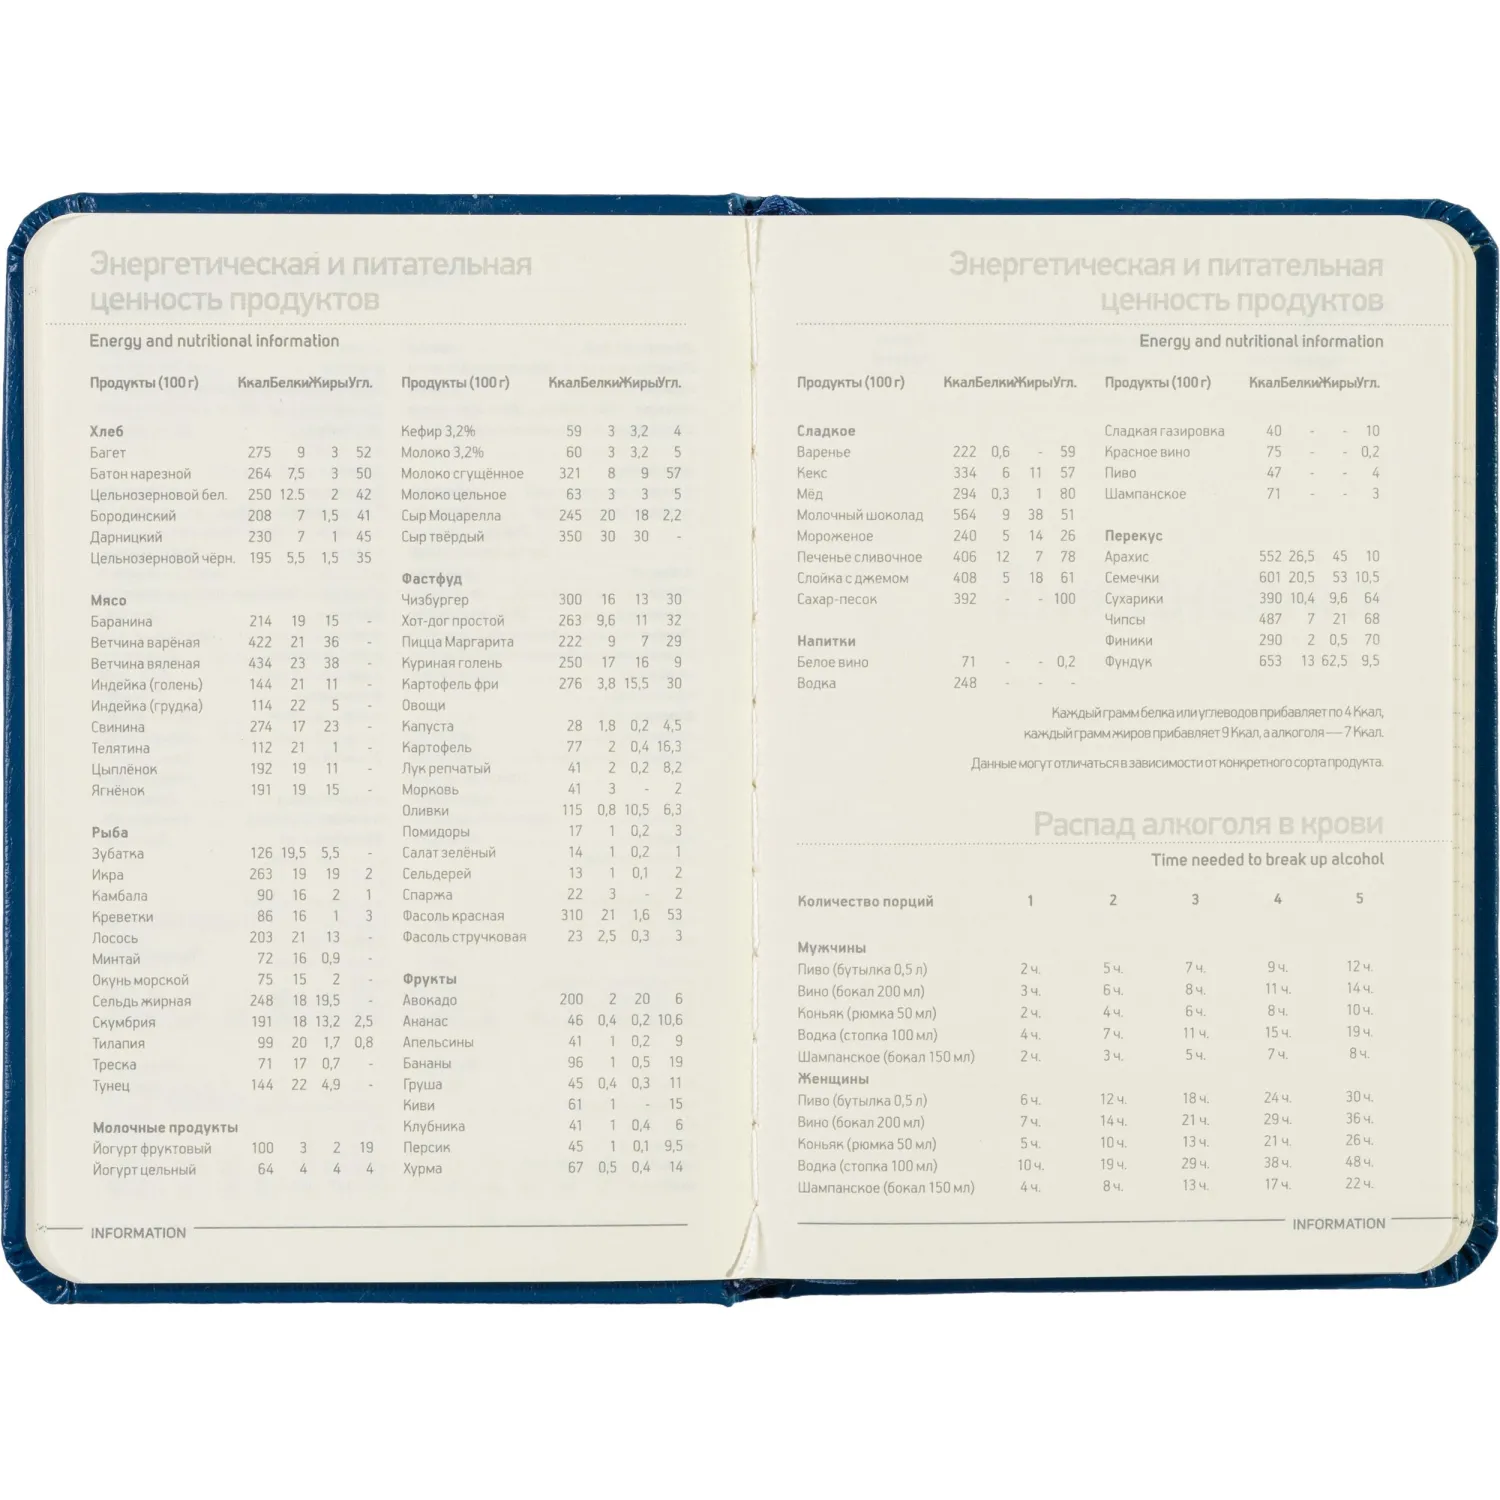 Энергетическая и питательная
ценность продуктов
Energy and nutritional information
Продукты (100 г) Ккал Белки Жиры Угл.
Хлеб
Багет 275 9 3 52
Батон нарезной 264 7,5 3 50
Цельнозерновой бел. 250 12.5 2 42
Бородинский 208 7 1,5 41
Дарницкий 230 7 1 45
Цельнозерновой чёрн. 195 5,5 1,5 35
Мясо
Баранина 214 19 15 -
Ветчина варёная 422 21 36 -
Ветчина вяленая 434 23 38 -
Индейка (голень) 144 21 11 -
Индейка (грудка) 114 22 5 -
Свинина 274 17 23 -
Телятина 112 21 1 -
Цыплёнок 192 19 11 -
Ягнёнок 191 19 15 -
Рыба
Зубатка 126 19,5 5,5 -
Икра 263 19 19 2
Камбала 90 16 2 1
Креветки 86 16 1 3
Лосось 203 21 13 -
Минтай 72 16 0,9 -
Окунь морской 75 15 2 -
Сельдь жирная 248 18 19,5 -
Скумбрия 191 18 13,2 2,5
Тилапия 99 20 1,7 0,8
Треска 71 17 0,7 -
Тунец 144 22 4,9 -
Молочные продукты
Йогурт фруктовый 100 3 2 19
Йогурт цельный 64 4 4 4
Продукты (100 г) Ккал Белки Жиры Угл.
Кефир 3,2% 59 3 3,2 4
Молоко 3,2% 60 3 3,2 5
Молоко сгущённое 321 8 9 57
Молоко цельное 63 3 3 5
Сыр Моцарелла 245 20 18 2,2
Сыр твёрдый 350 30 30 -
Фастфуд
Чизбургер 300 16 13 30
Хот-дог простой 263 9,6 11 32
Пицца Маргарита 222 9 7 29
Куриная голень 250 17 16 9
Картофель фри 276 3,8 15,5 30
Овощи
Капуста 28 1,8 0,2 4,5
Картофель 77 2 0,4 16,3
Лук репчатый 41 2 0,2 8,2
Морковь 41 3 - 2
Оливки 115 0,8 10,5 6,3
Помидоры 17 1 0,2 3
Салат зелёный 14 1 0,2 1
Сельдерей 13 1 0,1 2
Спаржа 22 3 - 2
Фасоль красная 310 21 1,6 53
Фасоль стручковая 23 2,5 0,3 3
Фрукты
Авокадо 200 2 20 6
Ананас 46 0,4 0,2 10,6
Апельсины 41 1 0,2 9
Бананы 96 1 0,5 19
Груша 45 0,4 0,3 11
Киви 61 1 - 15
Клубника 41 1 0,4 6
Персик 45 1 0,1 9,5
Хурма 67 0,5 0,4 14
INFORMATION
Энергетическая и питательная
ценность продуктов
Energy and nutritional information
Продукты (100 г) Ккал Белки Жиры Угл.
Сладкое
Варенье 222 0,6 - 59
Кекс 334 6 11 57
Мёд 294 0,3 1 80
Молочный шоколад 564 9 38 51
Мороженое 240 5 14 26
Печенье сливочное 406 12 7 78
Слойка с джемом 408 5 18 61
Сахар-песок 392 - - 100
Напитки
Белое вино 71 - - 0,2
Водка 248 - - -
Продукты (100 г) Ккал Белки Жиры Угл.
Сладкая газировка 40 - - 10
Красное вино 75 - - 0,2
Пиво 47 - - 4
Шампанское 71 - - 3
Перекус
Арахис 552 26,5 45 10
Семечки 601 20,5 53 10,5
Сухарики 390 10,4 9,6 64
Чипсы 487 7 21 68
Финики 290 2 0,5 70
Фундук 653 13 62,5 9,5
Каждый грамм белка или углеводов прибавляет по 4 Ккал,
каждый грамм жиров прибавляет 9 Ккал, а алкоголя — 7 Ккал.
Данные могут отличаться в зависимости от конкретного сорта продукта.
Распад алкоголя в крови
Time needed to break up alcohol
Количество порций 1 2 3 4 5
Мужчины
Пиво (бутылка 0,5 л) 2 ч. 5 ч. 7 ч. 9 ч. 12 ч.
Вино (бокал 200 мл) 3 ч. 6 ч. 8 ч. 11 ч. 14 ч.
Коньяк (рюмка 50 мл) 2 ч. 4 ч. 6 ч. 8 ч. 10 ч.
Водка (стопка 100 мл) 4 ч. 7 ч. 11 ч. 15 ч. 19 ч.
Шампанское (бокал 150 мл) 2 ч. 3 ч. 5 ч. 7 ч. 8 ч.
Женщины
Пиво (бутылка 0,5 л) 6 ч. 12 ч. 18 ч. 24 ч. 30 ч.
Вино (бокал 200 мл) 7 ч. 14 ч. 21 ч. 29 ч. 36 ч.
Коньяк (рюмка 50 мл) 5 ч. 10 ч. 13 ч. 21 ч. 26 ч.
Водка (стопка 100 мл) 10 ч. 19 ч. 29 ч. 38 ч. 48 ч.
Шампанское (бокал 150 мл) 4 ч. 8 ч. 13 ч. 17 ч. 22 ч.
INFORMATION